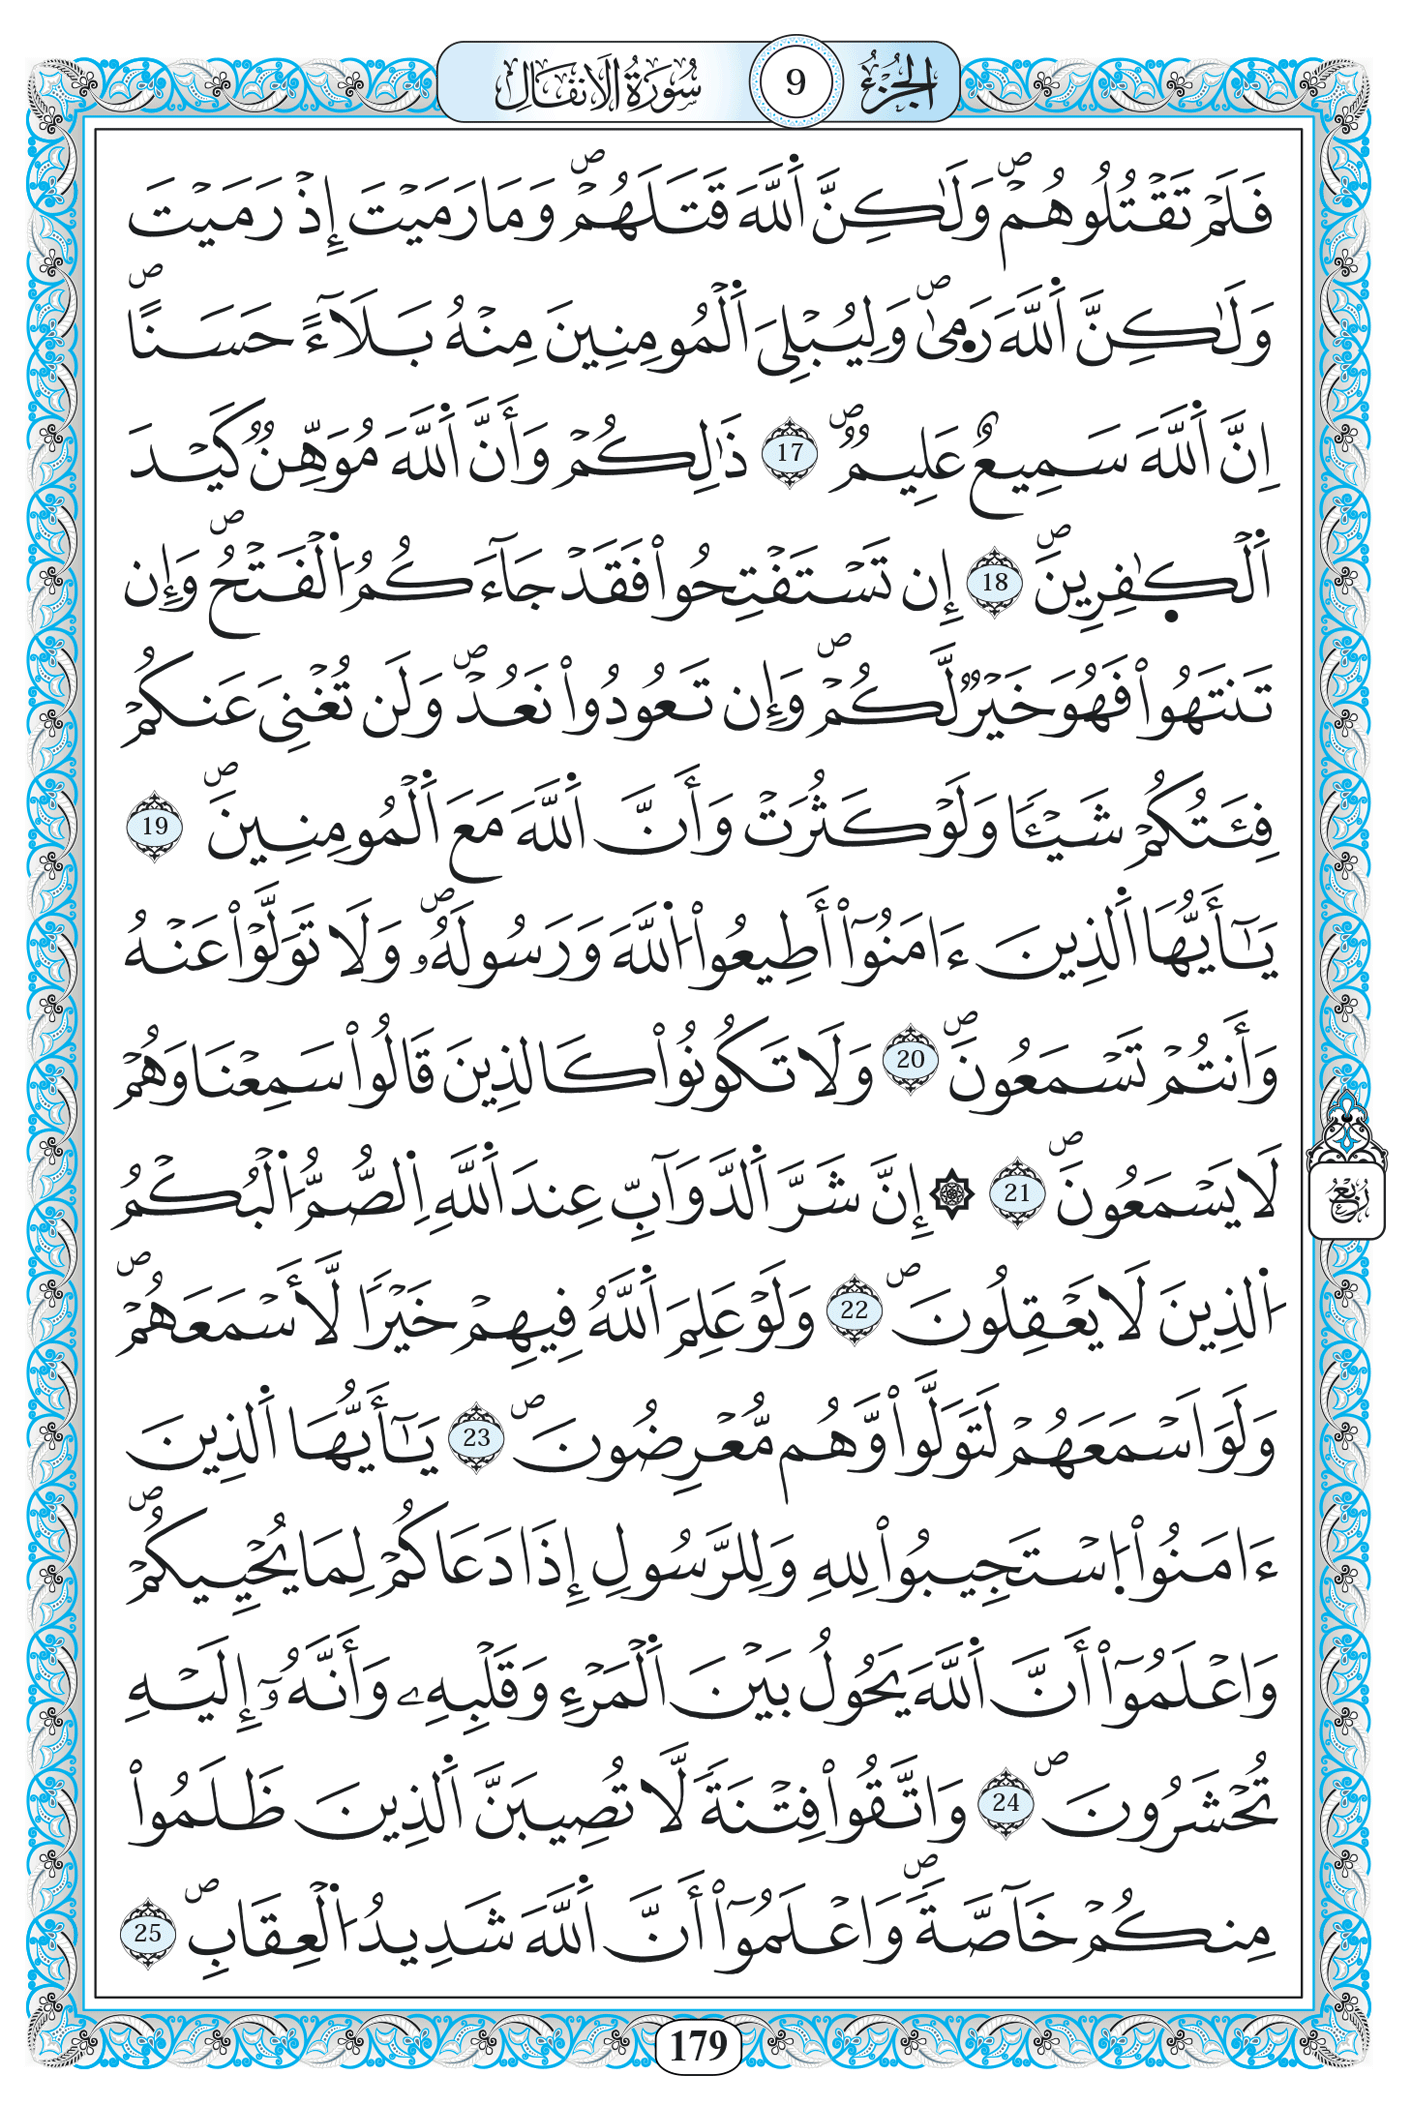 الجزء 9 سورة الانفال
فَلَمْ تَقْتُلُوهُمْۖ وَلَٰكِنَّ اَ۬للَّهَ قَتَلَهُمْۖ وَمَا رَمَيْتَ إِذْ رَمَيْتَ
وَلَٰكِنَّ اَ۬للَّهَ رَم۪ىٰۖ وَلِيُبْلِيَ اَ۬لْمُومِنِينَ مِنْهُ بَلَآءً حَسَناًۖ
اِنَّ اَ۬للَّهَ سَمِيعٌ عَلِيمٞۖ 17 ذَٰلِكُمْ وَأَنَّ اَ۬للَّهَ مُوَهِّنٞ كَيْدَ
اَ۬لْكٰ۪فِرِينَۖ 18 إِن تَسْتَفْتِحُواْ فَقَدْ جَآءَكُمُ اُ۬لْفَتْحُۖ وَإِن
تَنتَهُواْ فَهُوَ خَيْرٞ لَّكُمْۖ وَإِن تَعُودُواْ نَعُدْۖ وَلَن تُغْنِيَ عَنكُمْ
فِئَتُكُمْ شَيْـٔاً وَلَوْ كَثُرَتْ وَأَنَّ اَ۬للَّهَ مَعَ اَ۬لْمُومِنِينَۖ 19
يَٰٓأَيُّهَا اَ۬لذِينَ ءَامَنُوٓاْ أَطِيعُواْ اُ۬للَّهَ وَرَسُولَهُۥۖ وَلَا تَوَلَّوْاْ عَنْهُ
وَأَنتُمْ تَسْمَعُونَۖ 20 وَلَا تَكُونُواْ كَالذِينَ قَالُواْ سَمِعْنَا وَهُمْ
لَا يَسْمَعُونَۖ 21 ۞ إِنَّ شَرَّ اَ۬لدَّوَآبِّ عِندَ اَ۬للَّهِ اِ۬لصُّمُّ اُ۬لْبُكْمُ
اُ۬لذِينَ لَا يَعْقِلُونَۖ 22 وَلَوْ عَلِمَ اَ۬للَّهُ فِيهِمْ خَيْراً لَّأَسْمَعَهُمْۖ
وَلَوَ اَسْمَعَهُمْ لَتَوَلَّواْ وَّهُم مُّعْرِضُونَۖ 23 يَٰٓأَيُّهَا اَ۬لذِينَ
ءَامَنُواْ اُ۪سْتَجِيبُواْ لِلهِ وَلِلرَّسُولِ إِذَا دَعَاكُمْ لِمَا يُحْيِيكُمْۖ
وَاعْلَمُوٓاْ أَنَّ اَ۬للَّهَ يَحُولُ بَيْنَ اَ۬لْمَرْءِ وَقَلْبِهِۦ وَأَنَّهُۥٓ إِلَيْهِ
تُحْشَرُونَۖ 24 وَاتَّقُواْ فِتْنَةً لَّا تُصِيبَنَّ اَ۬لذِينَ ظَلَمُواْ
مِنكُمْ خَآصَّةًۖ وَاعْلَمُوٓاْ أَنَّ اَ۬للَّهَ شَدِيدُ اُ۬لْعِقَابِۖ 25
ربع
179